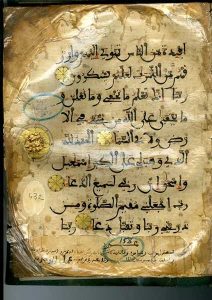 افئدة من الناس تهوي اليهم وارز
قهم من الثمرت لعلهم يشكرون
ربنا انك تعلم ما نخفي وما نعلن و
ما يخفى على الله من شيء في الا
رض ولا في السماء الحمد لله
الذي وهب لي على الكبر اسمعيل
واسحق ان ربي لسميع الدعاء
رب اجعلني مقيم الصلوة ومن
ذريتي ربنا وتقبل دعاء ربنا